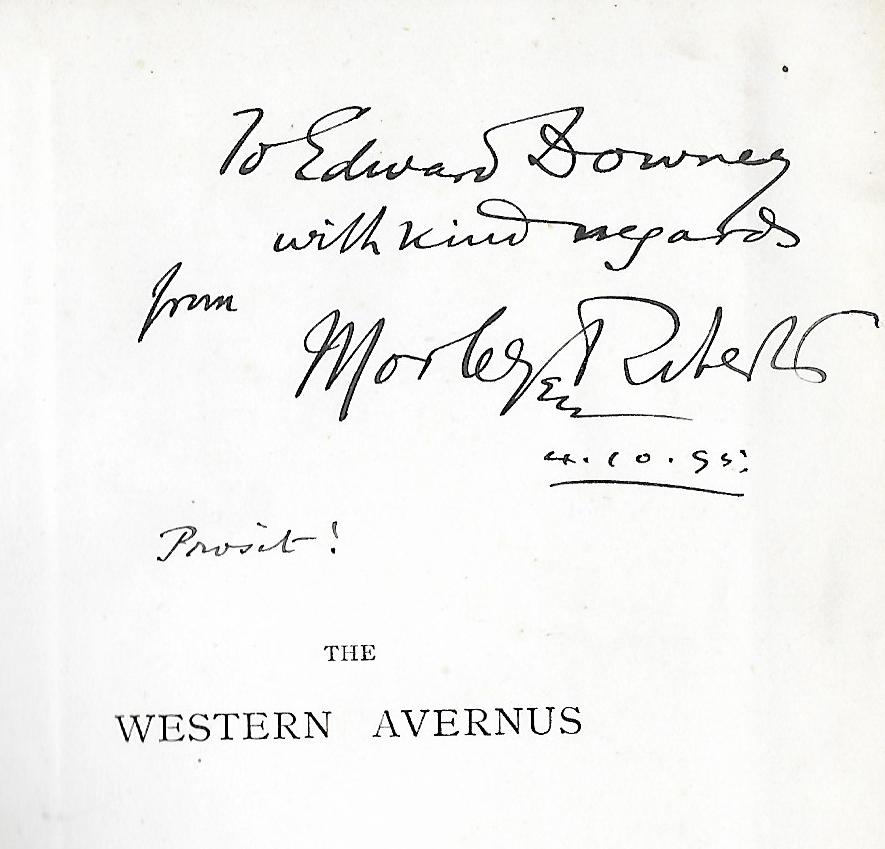 To Edward Downey
with kind regards
from
Morley Roberts
4.10.95.
Prosit!
THE
WESTERN AVERNUS